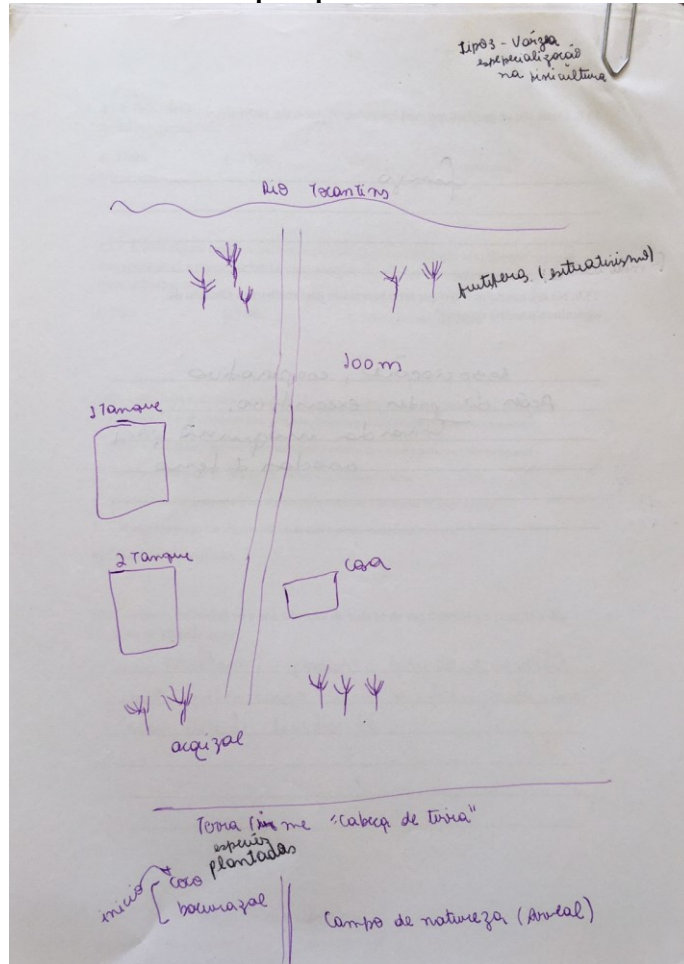 tipo 3 - Várzea
especialização
na piscicultura
Rio Tocantins
frutífera (extrativismo)
100m
1 Tanque
2 Tanque
casa
açaizal
Terra firme "cabeça de terra"
espécies
plantadas
início
coco
bacurazal
Campo de natureza (Areal)